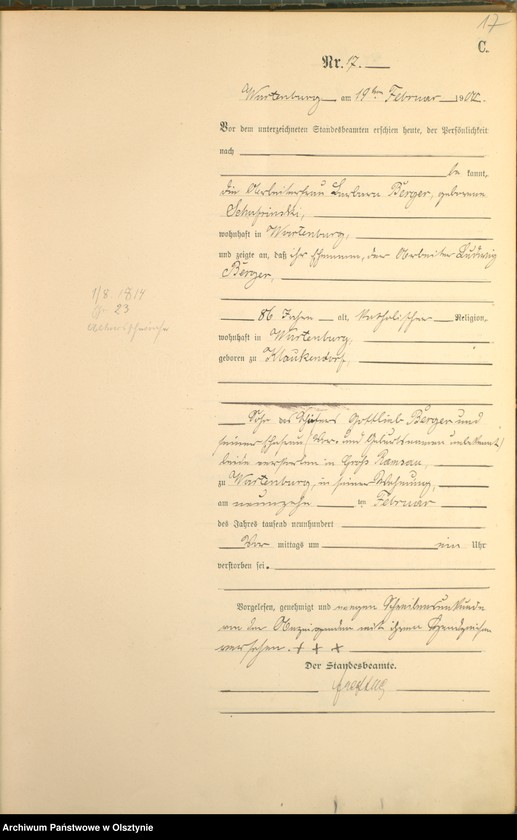 17
C.
Nr. 7.
Wartenburg am 19ten Februar 1900.
Vor dem unterzeichneten Standesbeamten erschien heute, der Persönlichkeit
nach
be kannt,
die Arbeiterfrau Barbara Berger, geborene
wohnhaft in Wartenburg,
und zeigte an, daß ihr Ehemann, der Arbeiter Ludwig
Berger,
86 Jahre alt, katholischer Religion,
wohnhaft in Wartenburg,
geboren zu Klaukendorf,
1/8 1814
23
Sohn des Gottlieb Berger und
seiner Ehefrau, Vor- und Geburtsnamen unbekannt,
beide verstorben in Groß Ramsau,
zu Wartenburg, in seiner Wohnung,
am neunzehn ten Februar
des Jahres tausend neunhundert
Vor mittags um ein Uhr
verstorben sei.
Vorgelesen, genehmigt und wegen Schreibensunkunde
von der Anzeigenden mit ihren Handzeichen
versehen. + + +
Der Standesbeamte.
Freitag
Archiwum Państwowe w Olsztynie